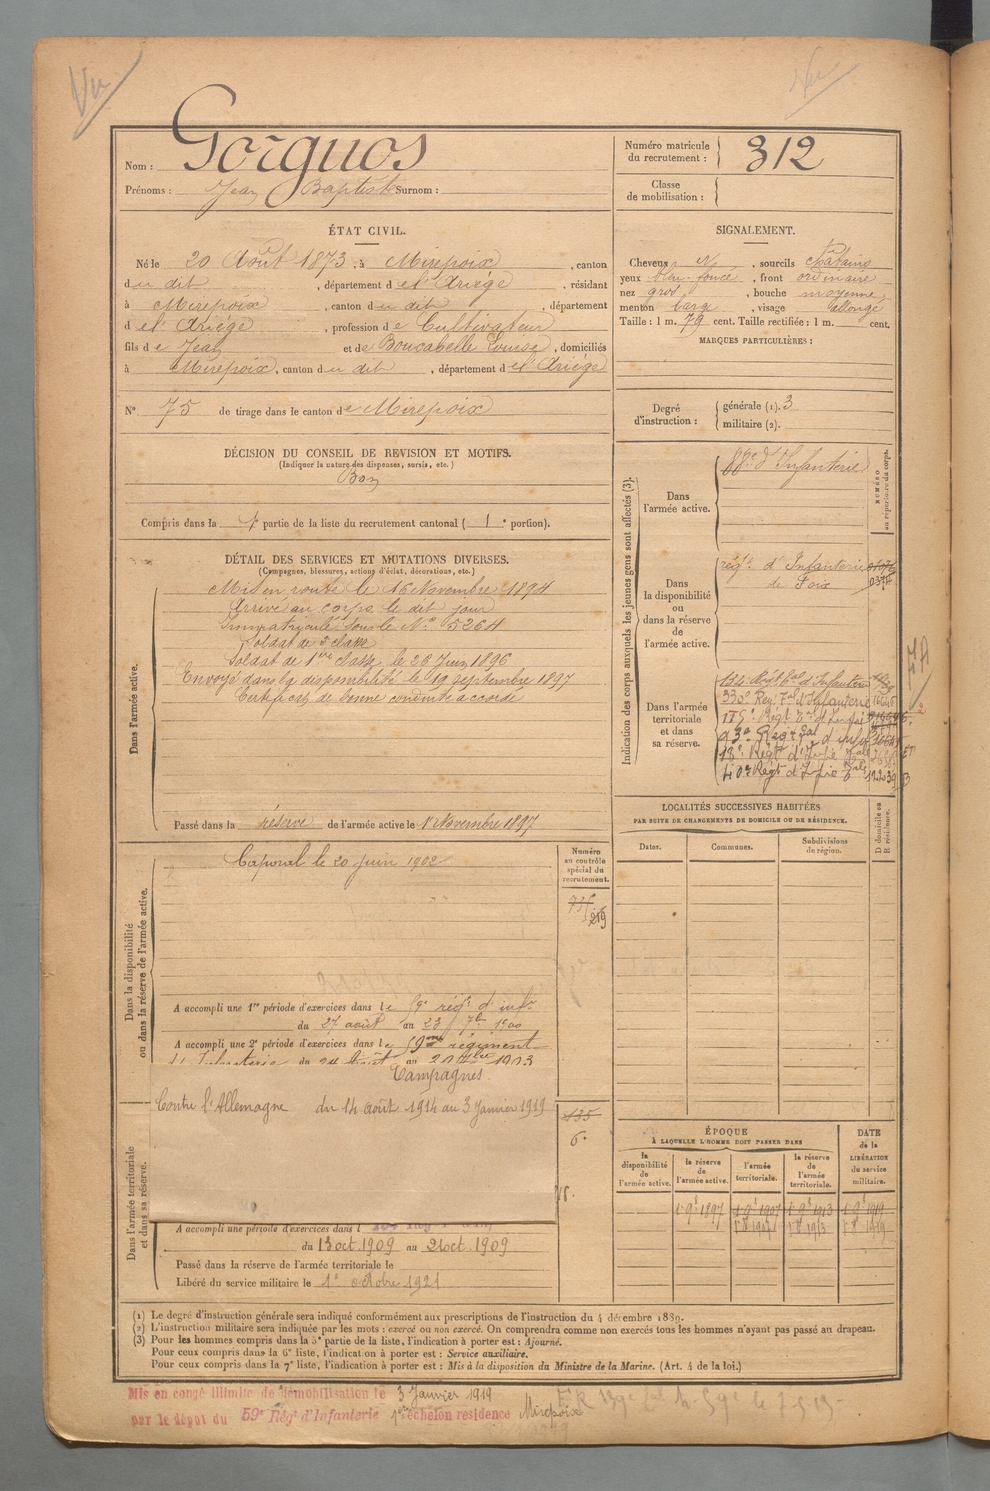 Vu
Vu
Nom : Gorguos
Prénoms : Jean Baptiste Surnom :
Numéro matricule du recrutement : 312
Classe de mobilisation :
ÉTAT CIVIL.
Né le 20 Août 1873, à Mirepoix, canton
du dit, département de l'Ariège, résidant
à Mirepoix, canton du dit, département
de l'Ariège, profession de Cultivateur
fils de Jean et de Boucabelle Louise, domiciliés
à Mirepoix, canton du dit, département de l'Ariège
N° 75 de tirage dans le canton de Mirepoix
SIGNALEMENT.
Cheveux N, sourcils chatains
yeux bleu foncé, front ordinaire
nez gros, bouche moyenne
menton large, visage allongé
Taille : 1 m. 79 cent. Taille rectifiée : 1 m. cent.
MARQUES PARTICULIÈRES :
Degré d'instruction : générale (1). 3
militaire (2).
DÉCISION DU CONSEIL DE REVISION ET MOTIFS.
(Indiquer la nature des dispenses, sursis, etc.)
Bon
Compris dans la 1 partie de la liste du recrutement cantonal ( 1 e portion).
DÉTAIL DES SERVICES ET MUTATIONS DIVERSES.
(Campagnes, blessures, actions d'éclat, décorations, etc.)
Dans l'armée active.
Mis en route le 16 Novembre 1894
Arrivé au corps le dit jour
Immatriculé sous le N° 5264
Soldat de 2e classe
Soldat de 1ère classe le 26 Juin 1896
Envoyé dans la disponibilité le 19 septembre 1897
Certificat de bonne conduite accordé
Passé dans la réserve de l'armée active le 1 Novembre 1897
Dans la disponibilité ou dans la réserve de l'armée active.
Caporal le 20 juin 1902
Numéro au contrôle spécial du recrutement.
219
A accompli une 1re période d'exercices dans le 59e régt d'infie
du 27 août au 23 7bre 1900
A accompli une 2e période d'exercices dans le 59me régiment
d'Infanterie du août au 1903
Campagnes
Contre l'Allemagne du 14 août 1914 au 3 Janvier 1919
135
6.
Dans l'armée territoriale et dans sa réserve.
A accompli une période d'exercices dans l
du 13 oct. 1909 au 21 oct. 1909
Passé dans la réserve de l'armée territoriale le
Libéré du service militaire le 1er octobre 1921
Indication des corps auxquels les jeunes gens sont affectés (3).
NUMÉRO au répertoire du corps.
Dans l'armée active.
88e d'Infanterie
Dans la disponibilité ou dans la réserve de l'armée active.
régt d'Infanterie
de Foix
Dans l'armée territoriale et dans sa réserve.
134e Régt Tal d'Infanterie
330e Reg. Tal d'Infanterie
175e Régt Tal d'Infie
93e Régt Tal d'infie
18e Régt d'Infie Tale
40e Régt d'Infie Tale 12239
LOCALITÉS SUCCESSIVES HABITÉES
PAR SUITE DE CHANGEMENTS DE DOMICILE OU DE RÉSIDENCE.
Dates. Communes. Subdivisions de région.
D domicile ou R résidence.
ÉPOQUE
À LAQUELLE L'HOMME DOIT PASSER DANS
DATE de la LIBÉRATION du service militaire.
la disponibilité de l'armée active. la réserve de l'armée active. l'armée territoriale. la réserve de l'armée territoriale.
1er 9e 1897 1er 9e 1907 1er 9e 1913 1er 9e 1919
(1) Le degré d'instruction générale sera indiqué conformément aux prescriptions de l'instruction du 4 décembre 1889.
(2) L'instruction militaire sera indiquée par les mots : exercé ou non exercé. On comprendra comme non exercés tous les hommes n'ayant pas passé au drapeau.
(3) Pour les hommes compris dans la 5e partie de la liste, l'indication à porter est : Ajourné.
Pour ceux compris dans la 6e liste, l'indication à porter est : Service auxiliaire.
Pour ceux compris dans la 7e liste, l'indication à porter est : Mis à la disposition du Ministre de la Marine. (Art. 4 de la loi.)
Mis en congé illimité de démobilisation le 3 Janvier 1919
par le dépôt du 59e Rég d'Infanterie 1er échelon résidence Mirepoix